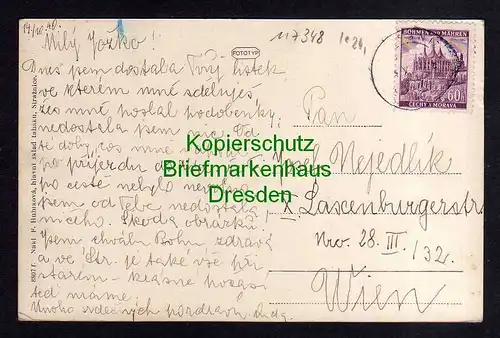 19/10.40.
Milý Jožko!
FOTOTYP
117348
BÖHMEN UND MÄHREN
ČECHY A MORAVA
60
Dnes jsem dostala Tvůj lístek
ve kterém mně sděluješ
žes mně poslal podobenky,
nedostala jsem nic. Od
té doby, cos mne
po příjezdu
po cestě nebylo
jsem od Tebe nedostala
ničeho. Škoda obrázků.
Jsem chvála Bohu, zdráva
a ve Str. je také vše při
starém – krásné počasí
teď máme.
Mnoho srdečných pozdravů
Pan
Josef Nejedlík
X. Laxenburgerstr
Nro. 28. III./32.
Wien
Kopierschutz
Briefmarkenhaus
Dresden
Nakl. F. Buhazová, hlavní sklad tabáku, Strážnice.